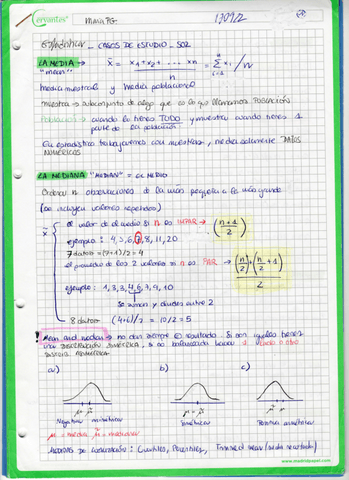 cervantes
María PG
17/09/2
Estadística - CASOS DE ESTUDIO - S02
LA MEDIA → x̄ = x1 + x2 + ... xn / n = Σ xi / n
"mean"
i=1
media muestral y media poblacional
muestra → subconjunto de algo que es lo que llamamos POBLACIÓN
Población → cuando lo tienes TODO y muestra cuando tienes 1
parte de la población
En estadística trabajaremos con muestras, media solamente DATOS
NUMÉRICOS
LA MEDIANA "MEDIAN" = EL MEDIO
Ordenar n observaciones de la más pequeña a la más grande
(se incluyen valores repetidos)
x̃
el valor del medio si n es IMPAR → (n+1 / 2)
ejemplo: 4, 5, 6, 7, 8, 11, 20
7 datos = (7+1)/2 = 4
el promedio de los 2 valores si n es PAR → (n/2) + (n/2 + 1) / 2
ejemplo: 1, 3, 3, 4, 6, 7, 9, 10
Se suman y divides entre 2
8 datos (4+6)/2 = 10/2 = 5
Mean and median → no dan siempre = resultado. Si son iguales tienes
una DISTRIBUCIÓN SIMÉTRICA, si no
a) b) c)
μ μ̃
μ = μ̃
μ̃ μ
Negativa asimétrica Simétrica Positiva asimétrica
μ = media μ̃ = mediana
MEDIDAS DE LOCALIZACIÓN: Cuartiles, Percentiles, Trimmed mean (media recortada)
www.madridpapel.com